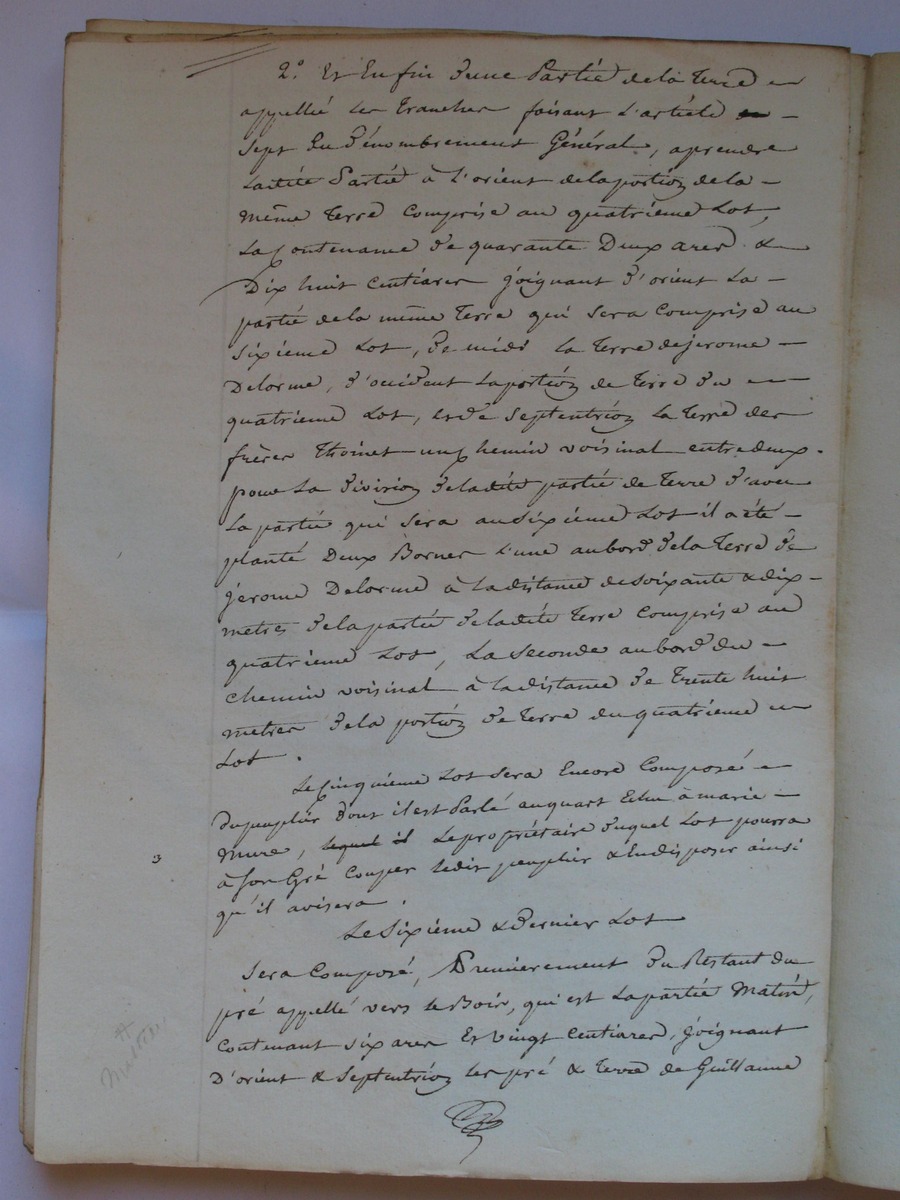 2.° Et Enfin d'une Partie de la Terre
appellée les Tranches faisant l'article
sept du dénombrement Général, aprendre
ladite Partie à l'orient de la portion de la
même Terre Comprise au quatrième Lot,
La Contenance de quarante Deux ares &
Dix huit Centiares joignant d'orient La
partie de la même Terre qui sera Comprise au
sixieme Lot, de midi la Terre de jerome
Delorme, d'occident La portion de Terre du
quatrieme Lot, et de Septentrion la Terre des
frères Thoinet un chemin voisinal entredeux.
pour La division de ladite partie de Terre d'avec
La partie qui sera au sixième Lot il a été
planté Deux Bornes l'une au bord de la Terre de
jerome Delorme à la distance de soixante & dix
metres de la partie de ladite Terre Comprise au
quatrieme Lot, La seconde au bord du
chemin voisinal à la distance de Trente huit
metres de la portion de Terre du quatrieme
Lot.
Le Cinquieme Lot sera Encore Composé
du peuplier dont il est Parlé au quart Echu à marie
Mure, lequel il Le propriétaire duquel Lot pourra
à son Gré Couper ledit peuplier & En disposer ainsi
qu'il avisera.
Le Sixieme & Dernier Lot
Sera Composé, Premierement Du Restant du
pré appellé vers le Bois, qui est La partie Matin,
Contenant six ares Et vingt Centiares, joignant
D'orient & Septentrion les pré & Terre de Guillaume